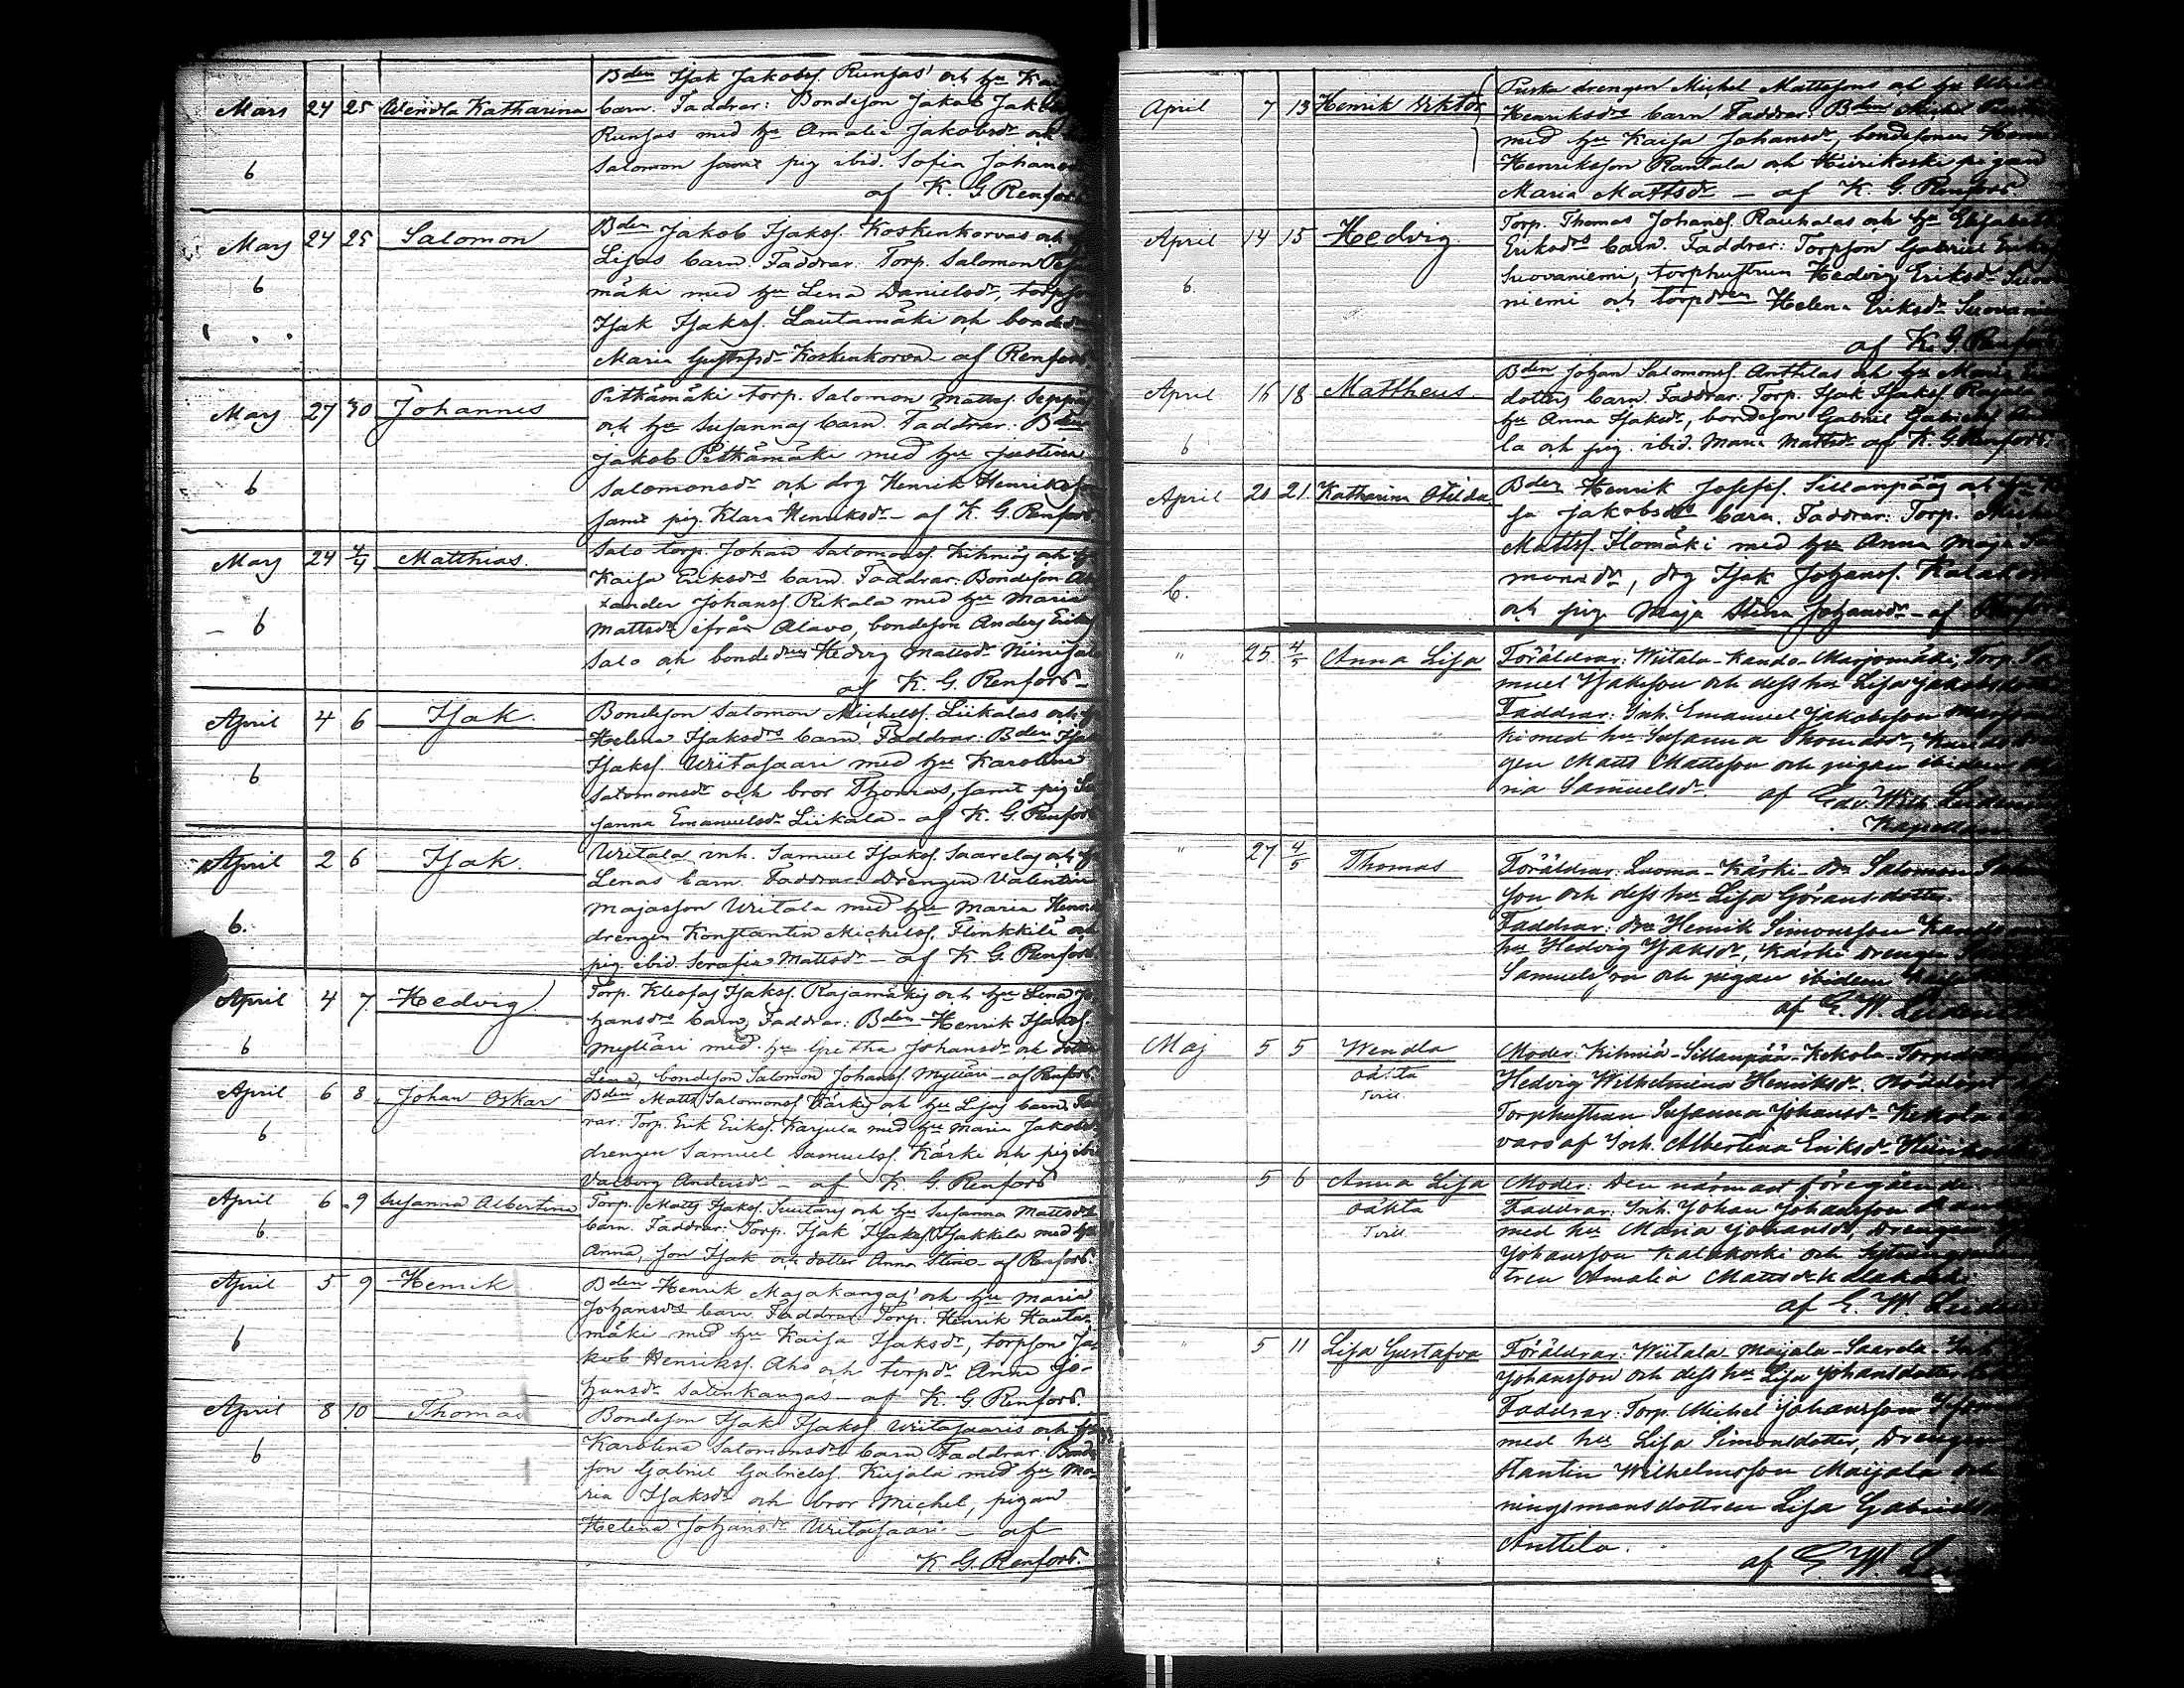 Bden Isak Jakobss. Runsas' och hu
Mars 24 25 Wendla Katharina barn. Faddrar: Bondeson Jakob Jakobs
Runsas med hu Amalia Jakobsdr och
Salomon samt pig ibid. Sofia Johansd
6
af K. G. Renfors
Mars 24 25 Salomon Bden Jakob Isakss. Koskenkorvas och
Lisas barn. Faddrar: Torp. Salomon
6
mäki med hu Lena Danielsdr, torpson
Isak Isakss. Lautamäki och bonded
Maria Gustafsdr Koskenkorva - af Renfors.
Mars 27 30 Johannes Pitkämäki torp. Salomon Mattss. Seppäs
och hu Susannas barn. Faddrar: Bden
Jakob Pitkämäki med hu Justina
6
Salomonsdr och drg Henrik Henriksson
samt pig. Klara Henriksdr - af K. G. Renfors.
Mars 24 4/4 Matthias. Salo torp. Johan Salomonss. Kihniäs och hu
Kaisa Eriksdrs barn. Faddrar: Bondeson Alexander
Johanss. Rekala med hu Maria
6
Mattsdr ifrån Alavo, bondeson Anders Eriks
Salo och bondedrn Hedvig Mattsdr Niinisalo
af K. G. Renfors -
April 4 6 Isak. Bondeson Salomon Michelss. Liikalas och hu
Helena Isaksdrs barn. Faddrar: Bden Isak
6
Isakss. Wiitasaari med hu Karolina
Salomonsdr och bror Thomas, samt pig Su
sanna Emanuelsdr Liikala - af K. G. Renfors
April 2 6 Isak. Wiitala inh. Samuel Isakss. Saarelas och hu
Lenas barn. Faddrar: Drengen Valentin
6.
Majasson Wiitala med hu Maria Henriks
drengen Konstantin Michelss. Flinkkilä och
pig ibid. Serafia Mattsdr - af K. G. Renfors.
April 4 7 Hedvig Torp. Kleofas Isakss. Rajamäkis och hu Lena Jo
hansdrs barn, Faddrar: Bden Henrik Isakss.
6
Mylläri med hu Gretha Johansdr och dotter
Lena, bondeson Salomon Johanss. Mylläri - af Renfors.
April 6 8 Johan Oskar Bden Matts Salomonss. Kärkis och hu Lisas barn. Fadd
rar: Torp. Erik Erikss. Karjula med hu Maria Jakobsdr
6
drengen Samuel Samuelss. Kärki och pig ibid
Valborg Andersdr - af K. G. Renfors
April 6 9 Susanna Albertina Torp. Matts Isakss. och hu Susanna Mattsdrs
6
barn. Faddrar: Torp. Isak Isakss. Isakkila med hu
Anna, son Isak och dotter Anna Stina - af Renfors.
April 5 9 Henrik Bden Henrik Majakangas' och hu Maria
Johansdrs barn Faddrar: Torp. Henrik Kauta-
6
mäki med hu Kaisa Isaksdr, torpson Ja-
kob Henrikss. Aho och torpdr Anna Jo-
hansdr Salinkangas - af K. G. Renfors.
April 8 10 Thomas Bondeson Isak Isakss. Wiitasaaris och hu
Karolina Salomonsdrs barn Faddrar: Bonde
6
son Gabriel Gabrielss. Kujala med hu Ma-
ria Isaksdr och bror Michel, pigan
Helena Johansdr Wiitasaari - af
K. G. Renfors.
April 7 13 Henrik Viktor drengen Michel Mattssons och hu
Henriksdrs barn Faddrar: Bden Michel
med hu Kaisa Johansdr, bondesonen
Henriksson Rantala och pigan
Maria Mattsdr - af K. G. Renfors
April 14 15 Hedvig. Torp. Thomas Johanss. Rauhalas och hu Elisabeth
Eriksdrs barn. Faddrar: Torpson Gabriel Eriks
6.
Suovaniemi, torphustrun Hedvig Eriksdr Suova
niemi och torpdren Helena Eriksdr Suovani
af K. G. Renfors
April 16 18 Mattheus. Bden Johan Salomonss. Anttilas och hu Maria
dotters barn. Faddrar: Torp. Isak Isakss.
6
hu Anna Isaksdr, bondeson Gabriel Gabrielss
la och pig. ibid. Maria Mattsdr af K. G. Renfors.
April 20 21 Katharina Otilda Bden Henrik Josefss. Sillanpääs och hu
sa Jakobsdrs barn. Faddrar: Torp. Michel
Mattss. Ilomäki med hu Anna Maja
6.
monsdr, drg Isak Johanss. Kalakoski
och pig Maja Stina Johansdr - af
" 25 4/5 Anna Lisa Föräldrar: Wiitala-Kando-Marjomäki, Torp. Sa
muel Isaksson och dess hu Lisa Jakobsdotter
Faddrar: Inh. Emanuel Jakobsson
ki med hu Susanna Thomasdr,
gen Matts Mattsson och pigan ibidem
ria Samuelsdr. af Edv. Wilh.
Kapellan
" 27 4/5 Thomas Föräldrar: Luoma-Kärki-Bn Salomon
son och dess hu Lisa Göransdotter.
Faddrar: Bn Henrik Simonsson
hu Hedvig Isaksdr, Kärki drengen
Samuelsson och pigan ibidem
af E. W.
Maj 5 5 Wendla Moder: Kihniä-Sillanpää-Kekola-Torpdottren
oäkta
Hedvig Wilhelmina Henriksdr. Nöddöpt
Tvill.
Torphustrun Susanna Johansdr Kekola
vars af Inh. Albertina Eriksdr
" 5 6 Anna Lisa Moder: Den närmast föregående.
oäkta
Faddrar: Inh. Johan Johansson
Tvill
med hu Maria Johansdr, Drengen
Johansson Kalakoski och
tren Amalia Mattsdr Kalakoski
af E. W.
" 5 11 Lisa Gustafva Föräldrar: Wiitala Maijala-Saarela-Inh.
Johansson och dess hu Lisa Johansdotter
Faddrar: Torp. Michel Johansson
med hu Lisa Simonsdotter, Drengen
stantin Wilhelmsson Maijala och
ningsmansdottren Lisa Gabriels
Anttila.
af E. W.